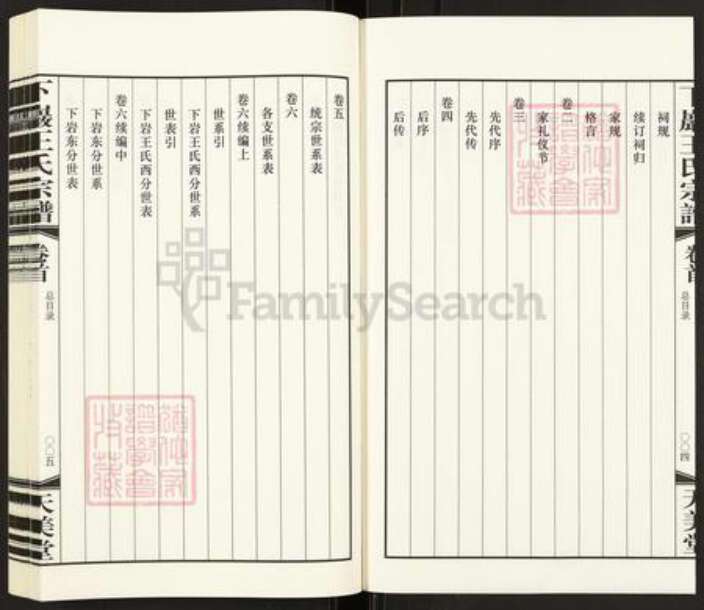 祠规
续订祠归
家规
格言
卷二
家礼仪节
卷三
先代序
先代传
卷四
后序
后传
下巖王氏宗譜
卷首
总目录
〇〇四
天美堂
卷五
统宗世系表
各支世系表
卷六
卷六续编上
世系引
下岩王氏西分世系
世表引
下岩王氏西分世表
卷六续编中
下岩东分世系
下岩东分世表
下巖王氏宗譜
卷首
总目录
〇〇五
天美堂
FamilySearch